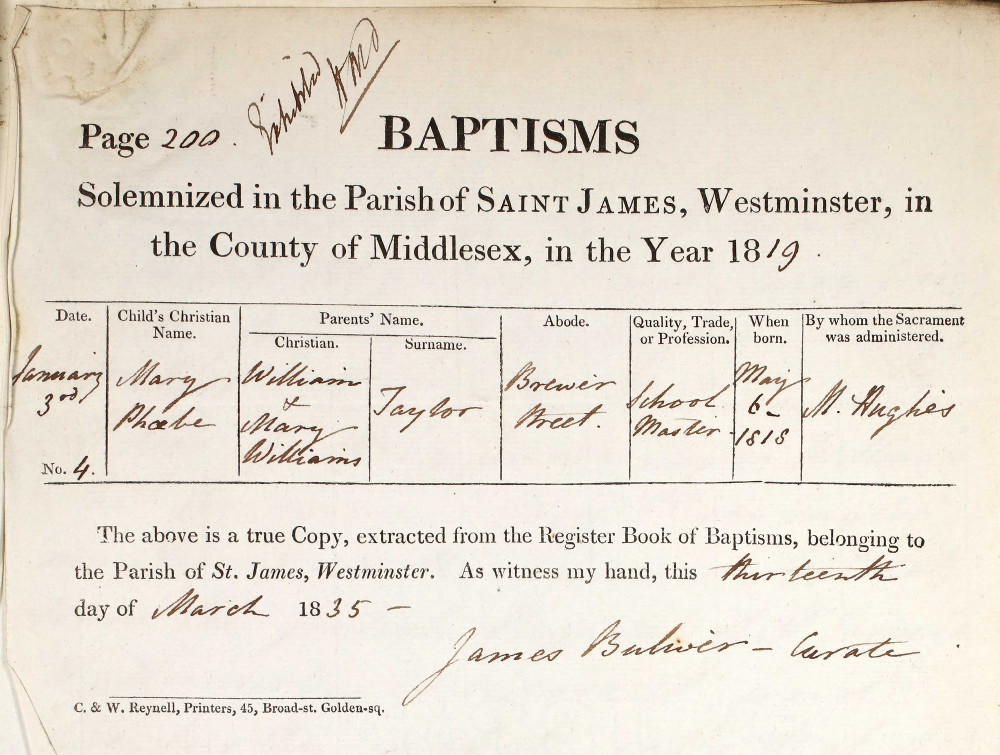 Exhibited
Page 200. BAPTISMS
Solemnized in the Parish of SAINT JAMES, Westminster, in
the County of Middlesex, in the Year 1819.
Date. Child's Christian Name. Parents' Name. Christian. Surname. Abode. Quality, Trade, or Profession. When born. By whom the Sacrament was administered.
January 3rd No. 4. Mary Phœbe William & Mary Williams Taylor Brewer Street. School Master May 6 - 1818 M. Hughes
The above is a true Copy, extracted from the Register Book of Baptisms, belonging to
the Parish of St. James, Westminster. As witness my hand, this thirteenth
day of March 1835 -
James Bulwer - Curate
C. & W. Reynell, Printers, 45, Broad-st. Golden-sq.